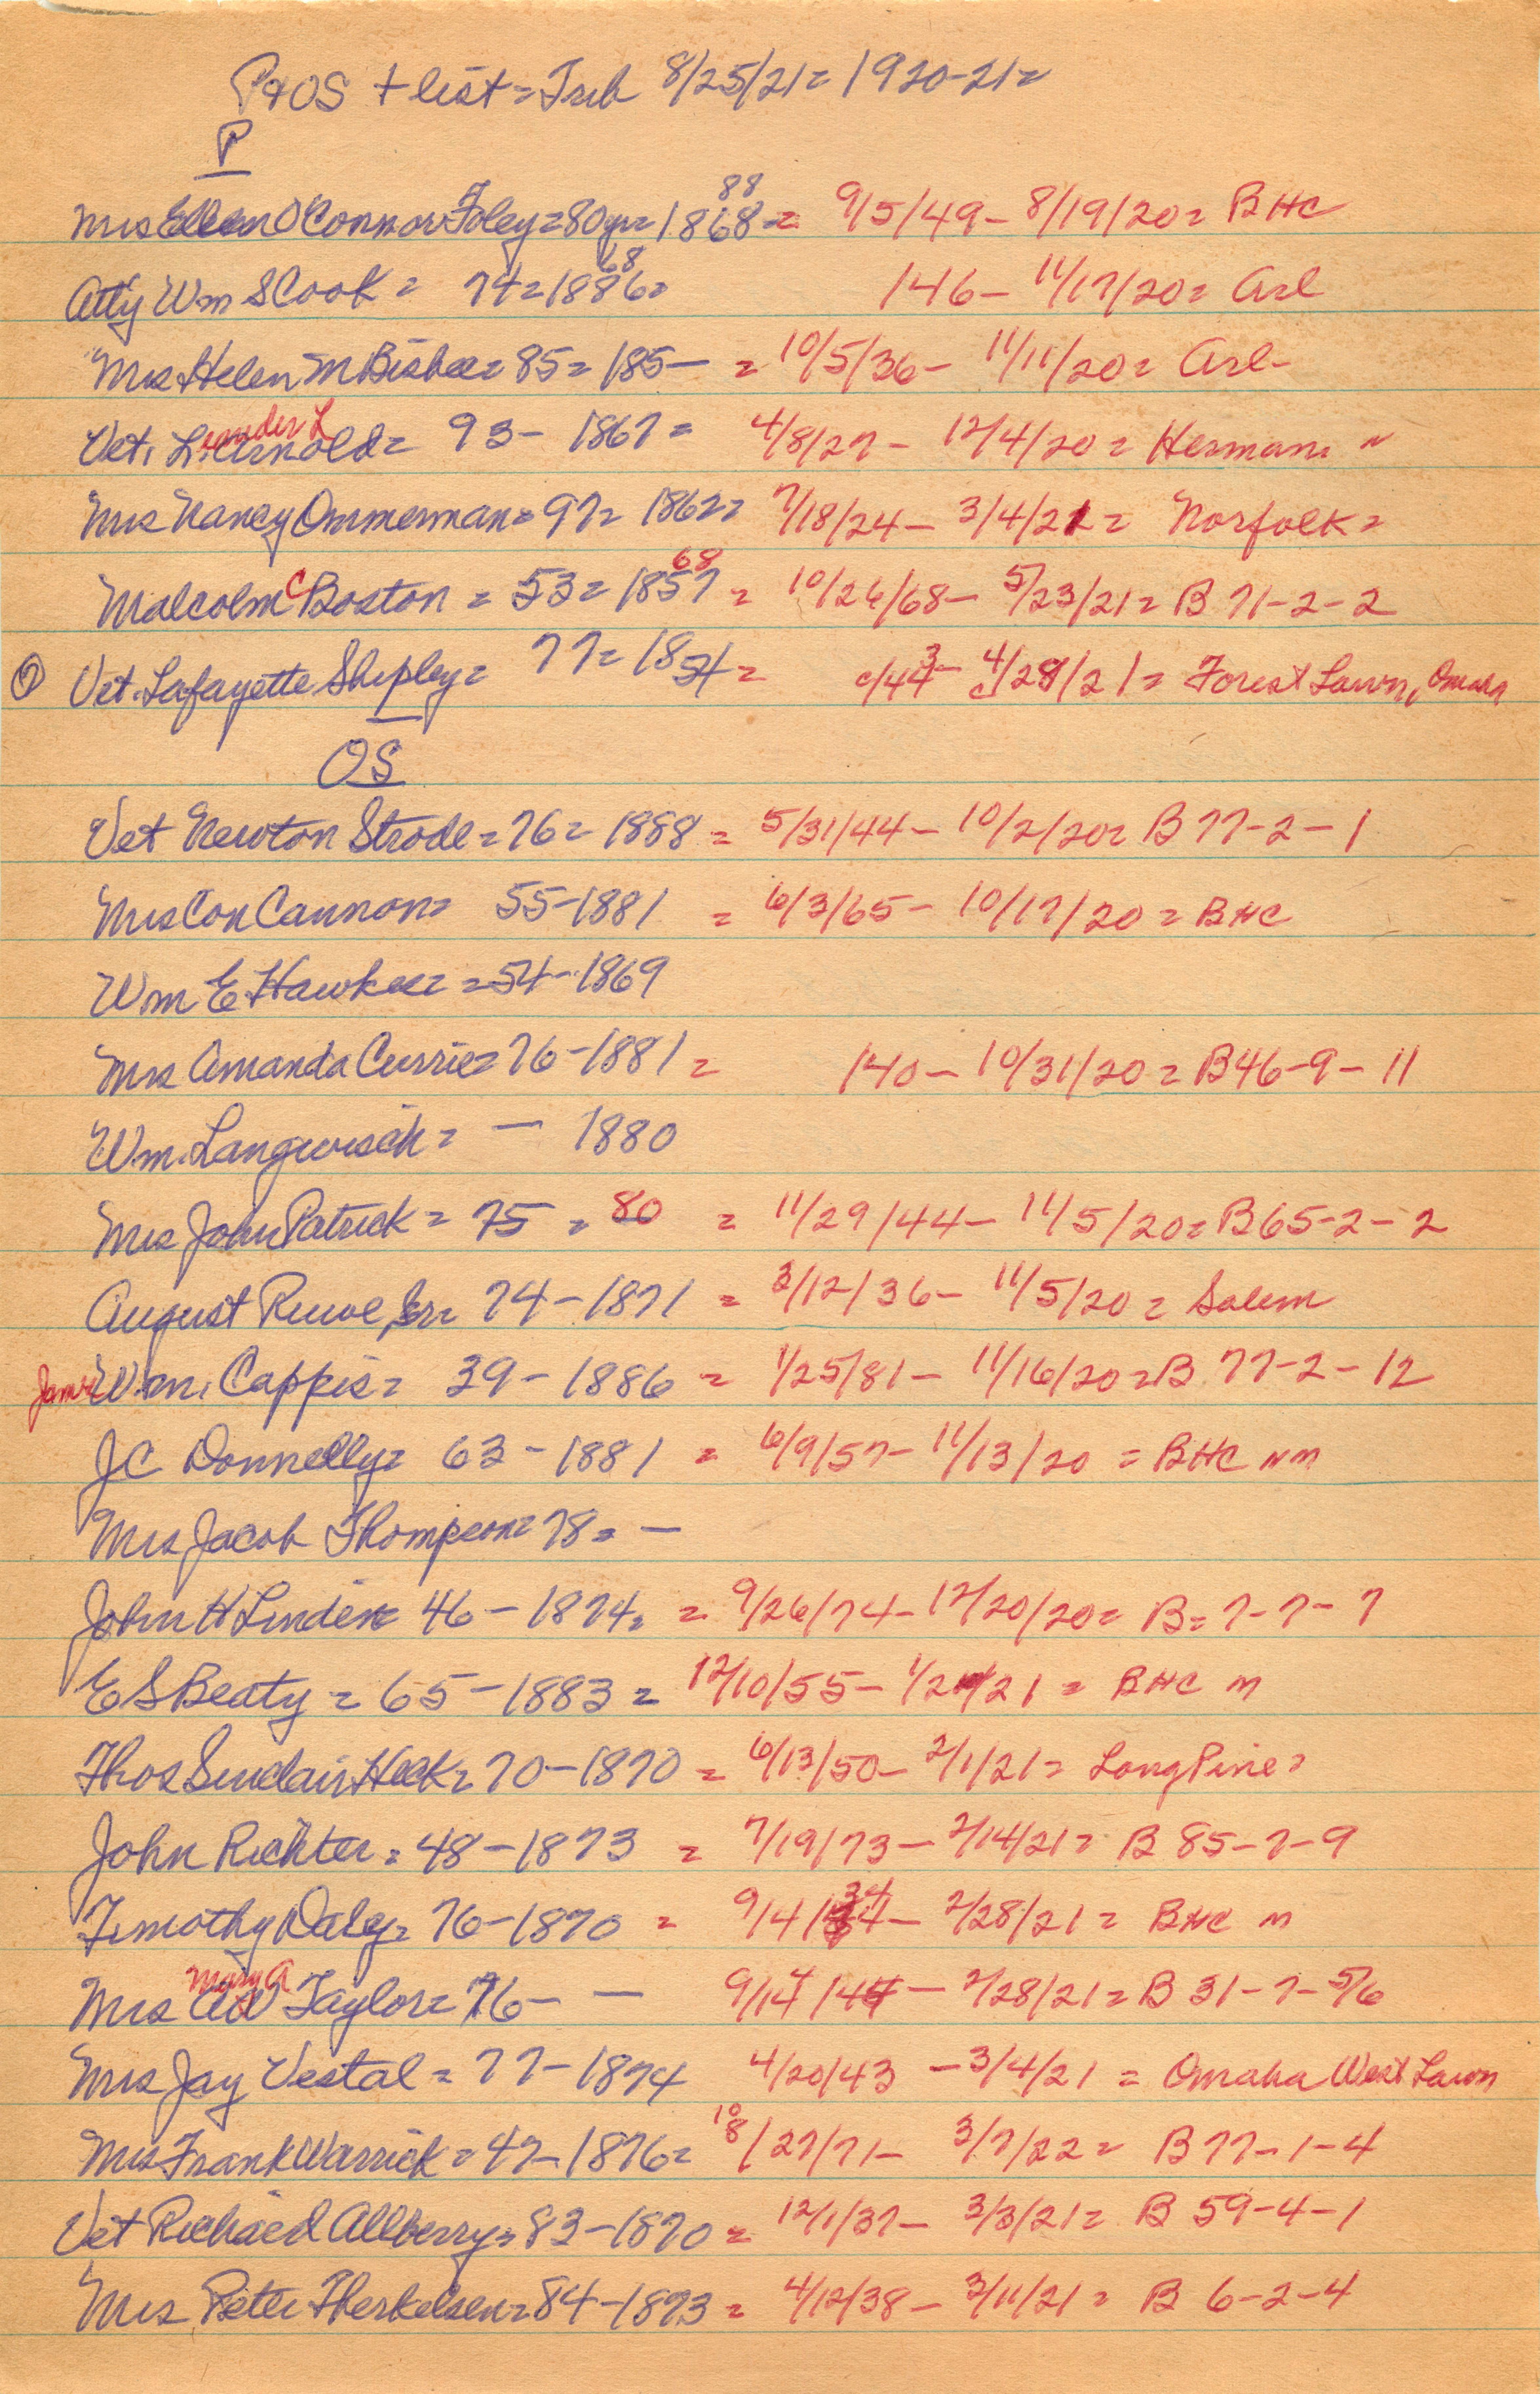 P+OS + list = Trib 8/25/21 = 1920-21 =
P
88
Mrs Ellen O'Connor Foley = 80 yr = 1868 = 9/5/49 - 8/19/20 = BHC
68
Atty Wm S Cook = 74 = 1886 = 146 - 11/17/20 = Arl
Mrs Helen M Bisbee = 85 = 185- = 10/5/36 - 11/11/20 = Arl -
eander L
Vet. L. Arnold = 93 - 1867 = 4/8/27 - 12/4/20 = Herman = N
Mrs Nancy Ommerman = 97 = 1862 = 7/18/24 - 3/4/21 = Norfolk =
68
Malcolm C Boston = 53 = 1857 = 10/26/68 - 5/23/21 = B 71-2-2
? Vet. Lafayette Shipley = 77 = 1854 = c/443 - 4/28/21 = Forest Lawn, Omaha
OS
Vet Newton Strode = 76 = 1888 = 5/31/44 - 10/2/20 = B 77-2-1
Mrs Con Cannon = 55 - 1881 = 6/3/65 - 10/17/20 = BHC
Wm E Hawkes = 54 - 1869
Mrs Amanda Currie = 76 - 1881 = 140 - 10/31/20 = B46-9-11
Wm. Langwisch = — 1880
Mrs John Patrick = 75 = 80 = 11/29/44 - 11/5/20 = B65-2-2
August Ruwe, Sr = 74 - 1871 = 3/12/36 - 11/5/20 = Salem
James Wm. Cappis = 39 - 1886 = 1/25/81 - 11/16/20 = B 77-2-12
JC Donnelly = 63 - 1881 = 6/9/57 - 11/13/20 = BHC NM
Mrs Jacob Thompson = 78 = —
John H Linden = 46 - 1874 = = 9/26/74 - 12/20/20 = B = 7-7-7
E S Beaty = 65 - 1883 = 12/10/55 - 1/21/21 = BHC M
Thos Sinclair Heck = 70 - 1870 = 6/13/50 - 2/1/21 = Long Pine =
John Richter = 48 - 1873 = 7/19/73 - 2/14/21 = B 85-7-9
34
Timothy Daley = 76 - 1870 = 9/14/ - 2/28/21 = BHC M
Mary A
Mrs AW Taylor = 76 - — 9/14/44 - 2/28/21 = B 31-7-5/6
Mrs Jay Vestal = 77 - 1874 4/20/43 - 3/4/21 = Omaha West Lawn
10
Mrs Frank Warrick = 47 - 1876 = 8/27/71 - 3/7/22 = B 77-1-4
Vet Richard Allberry = 83 - 1870 = 12/1/37 - 3/3/21 = B 59-4-1
Mrs Peter Therkelsen = 84 - 1873 = 4/12/38 - 3/11/21 = B 6-2-4